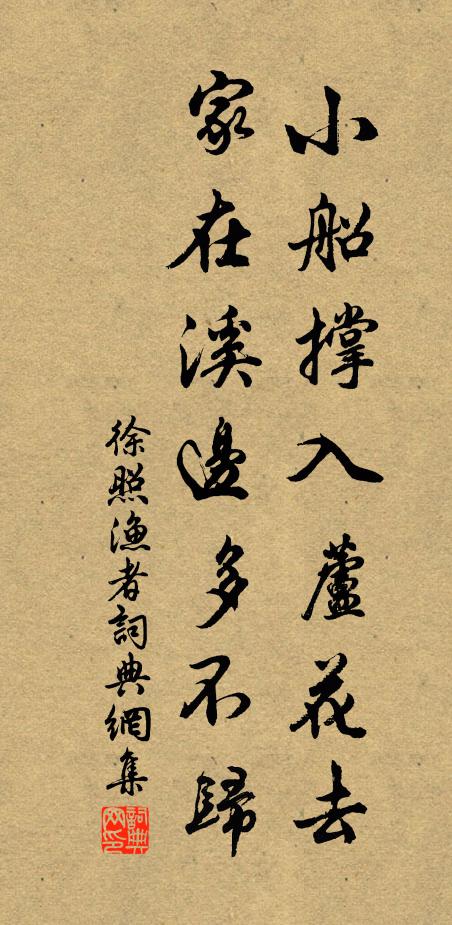 小船撐入蘆花去
家在溪邊多不歸
徐照漁者詞典網集
詞典网印